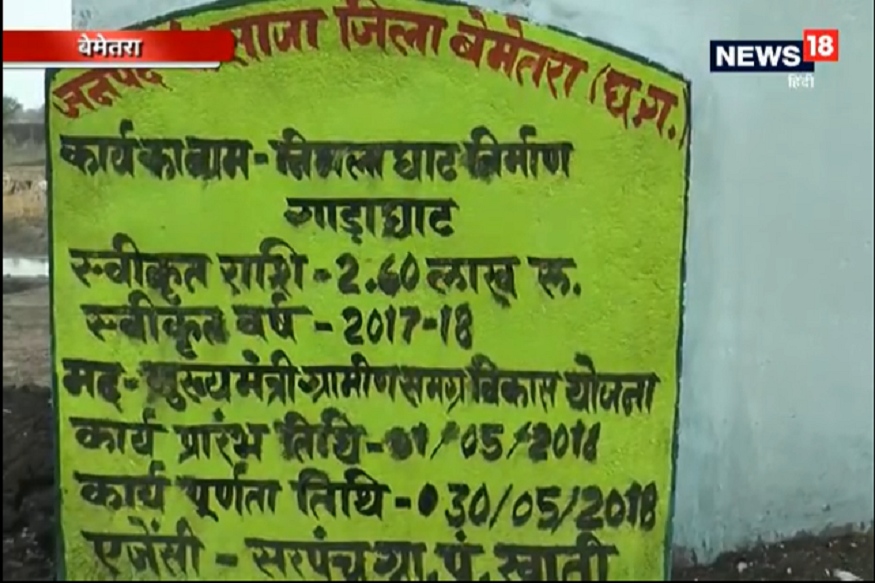 बेमेतरा
NEWS 18
हिंदी
जनपद साजा जिला बेमेतरा (छ.ग.)
कार्य का नाम - निर्मला घाट निर्माण
गाड़ाघाट
स्वीकृत राशि - 2.60 लाख रू.
स्वीकृत वर्ष - 2017-18
मद - मुख्यमंत्री ग्रामीण समग्र विकास योजना
कार्य प्रारंभ तिथि - 01/05/2018
कार्य पूर्णता तिथि - 30/05/2018
एजेंसी - सरपंच ग्रा. पं. खाती